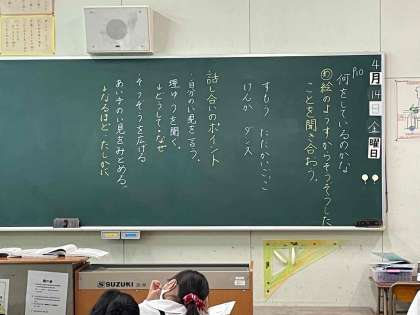 4月14日金曜日
P10
何をしているのかな
め絵のようすからそうぞうした
ことを聞き合おう。
すもう たたかいごっこ
けんか ダンス
話し合いのポイント
・自分のい見を言う。
・理ゆうを聞く。
↓どうして・なぜ
・そうぞうを広げる
・あい手のい見をみとめる。
↓なるほど たしかに
SUZUKI